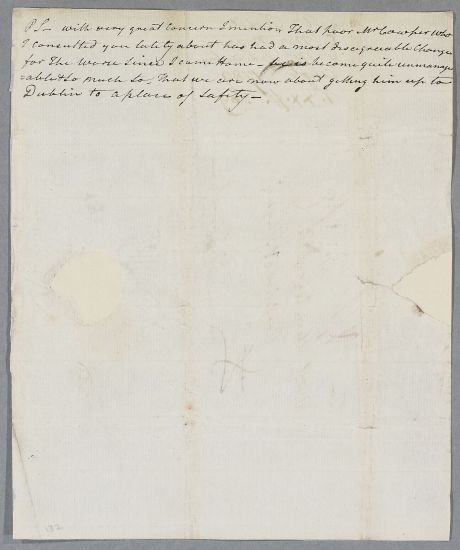 PS– with very great Concern I mention That poor Mr Cowper who
I consulted you lately about has had a most disagreeable Change
for The Worse Since I came Home – he is become quite unmanage
=able & so much So, That we are now about getting him up to
Dublin to a place of Safety –
132